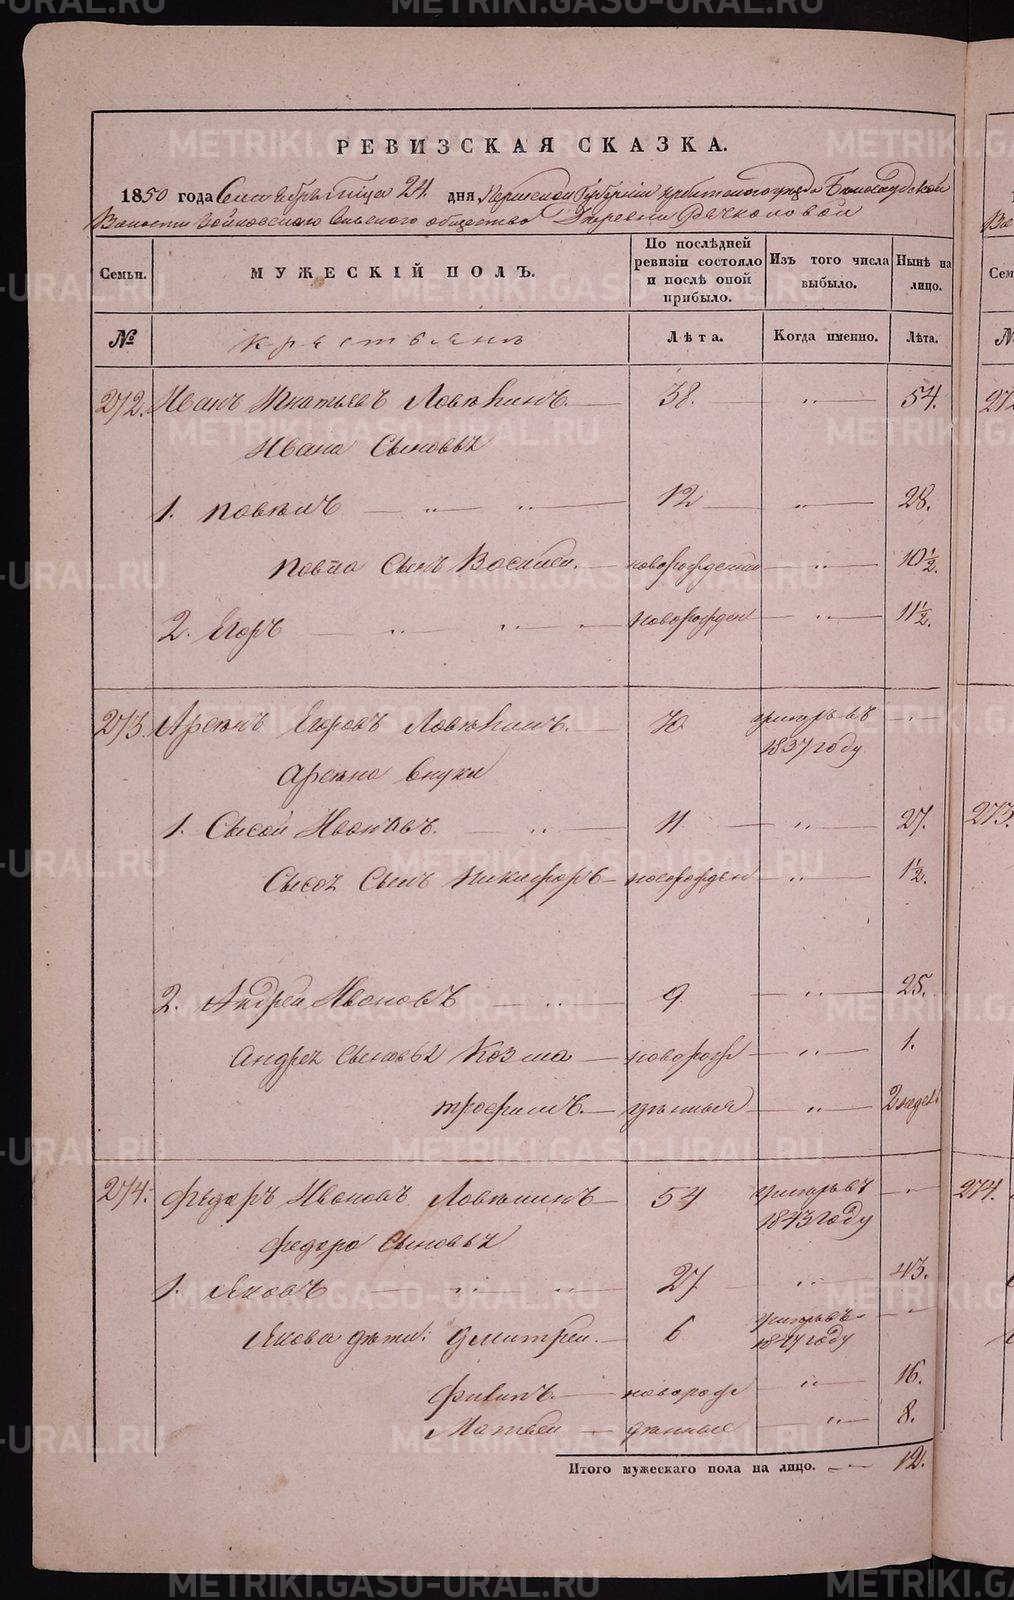 РЕВИЗСКАЯ СКАЗКА.
1850 года Сентября месяца 24 дня Пермской Губернии Ирбитского уезда Белослудской
Волости Зайковского Сельского общества Деревни Речкаловой
Семьи. МУЖЕСКІЙ ПОЛЪ. По послѣдней ревизіи состояло и послѣ оной прибыло. Изъ того числа выбыло. Нынѣ на лицо.
№ Крестьянъ Лѣта. Когда именно. Лѣта.
272. Иванъ Игнатьевъ Ловкинъ 38. 54.
Ивана Сыновья
1. Павелъ 12 28.
Павла Сынъ Василей новорожденный 10½.
2. Егоръ новорожден 11½.
273. Егоровъ 70 умеръ въ 1837 году
внуки
1. Сысой Ивановъ. 11 27.
Сысоя Сынъ Никифоръ новорожден 1½.
2. Андрей Ивановъ 9 25.
Андрея Сыновья Козма новорож 1.
Трофимъ денныя 2 недел
274. Федоръ Ивановъ 54 умеръ въ 1843 году
Федора Сыновья
1. Яковъ 27 43.
Якова дѣти: Дмитрей 6 умеръ въ 1847 году
Филипъ новорож 16.
Матвей денныя 8.
Итого мужескаго пола на лицо. 12.
METRIKI.GASO-URAL.RU